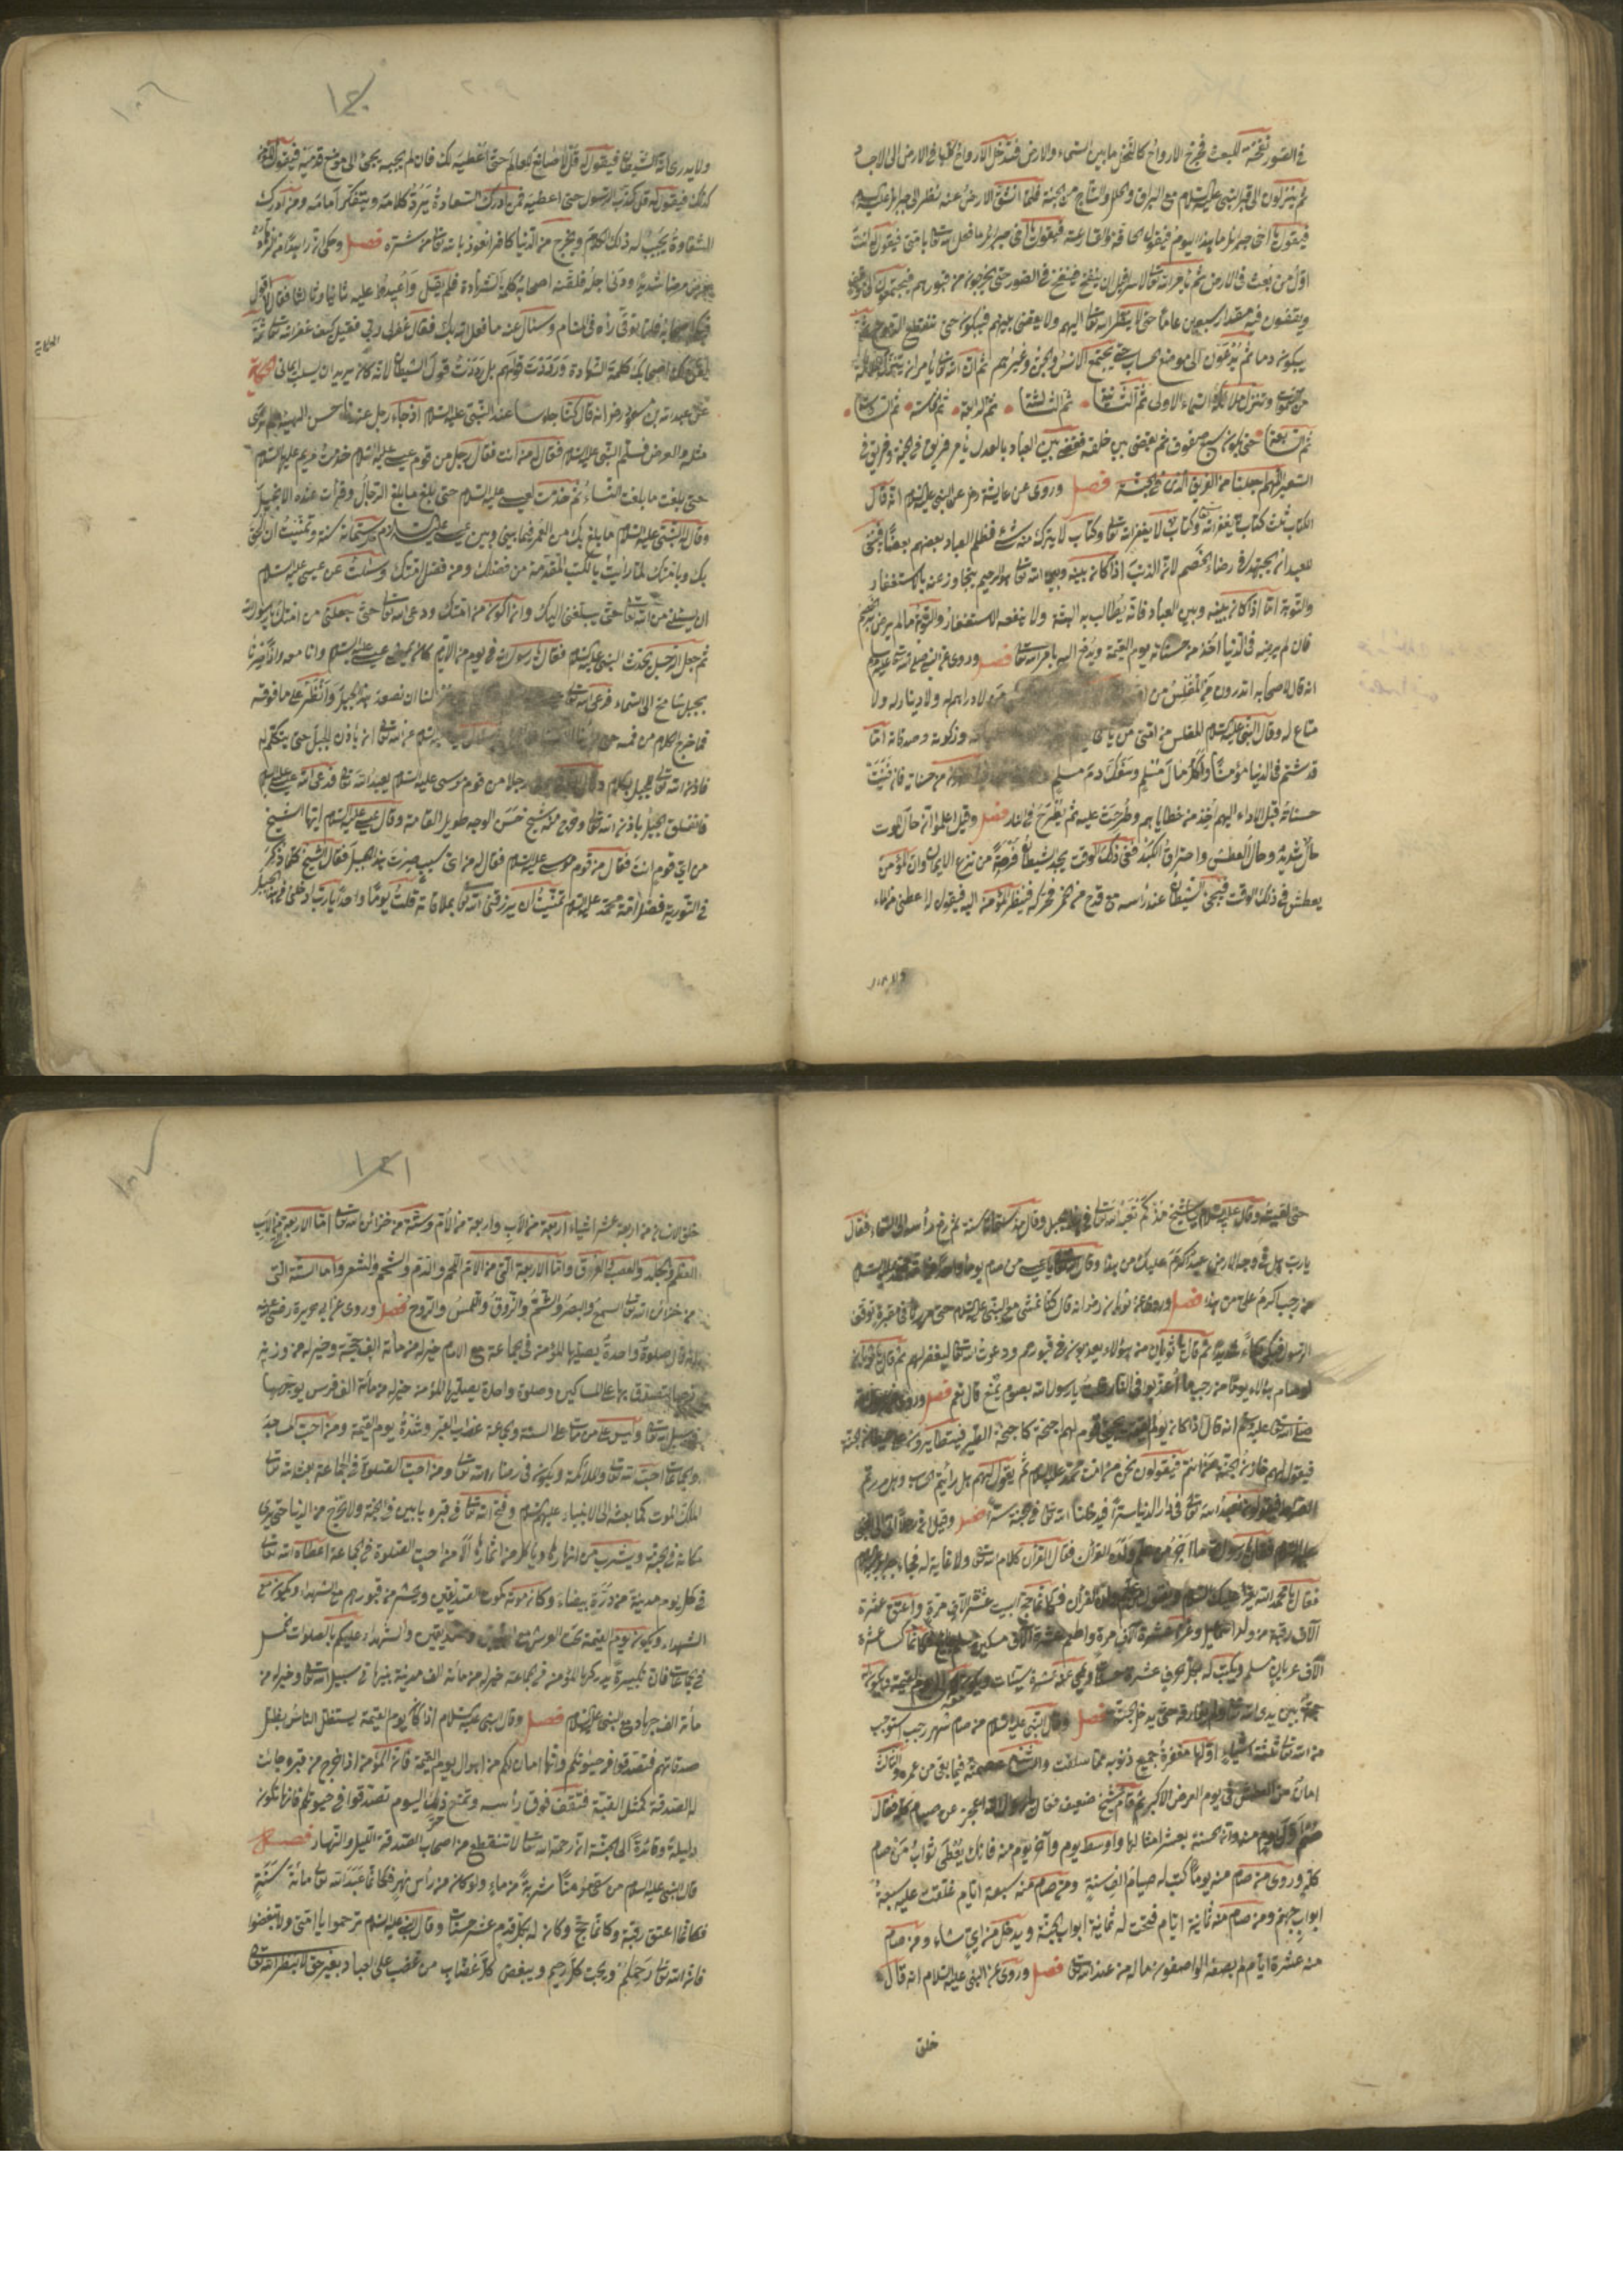 في الصور نفخة للبعث فتخرج الارواح كالنحل ما بين السماء والارض فتدخل الارواح كلها في الارض الى الاجساد
ثم ينزلون الى قبر النبي عليه السلام مع البراق والحلل والتاج من الجنة فلما انشق الارض عنه نظر الى جبرائل عليه السلام
فيقول يا اخى جبرائل ما هذا اليوم فيقول الحاقة والقارعة فيقول يا اخى جبرائل ما فعل الله تعالى بامتى فيقول انت
اول من بعث في الارض ثم يأمر الله تعالى اسرافيل ان ينفخ فينفخ في الصور حتى يخرجون من قبورهم فيجتمعون
ويقفون فيه مقدار سبعين عاما حتى لا ينظر الله تعالى اليهم ولا يقضى بينهم فيبكون حتى تنقطع الدموع
يبكون دما ثم يدعون الى موضع الحساب حتى يجتمع الانس والجن وغيرهم ثم ان الله تعالى يأمر
وتنزل ملائكة السماء الاولى ثم الثانية ثم الثالثة ثم الرابعة ثم الخامسة ثم السادسة
ثم السابعة حتى يكون سبع صفوف ثم يقضى بين خلقه فيقضى بين العباد بالعدل يأمر فريق في الجنة وفريق في
السعير اللهم اجعلنا من الفريق الذى في الجنة فصل وروى عن عايشة رضى عن النبي عليه السلام انه قال
الكتاب ثلث كتاب يغفر الله تعالى وكتاب لا يغفر الله تعالى وكتاب لا يترك منه شئ فظلم العباد بعضهم بعضا فينبغى
للعبد ان يجتهد في رضاء الخصم لان الذنب اذا كان بينه وبين الله تعالى هو الرحيم يتجاوز عنه بالاستغفار
والتوبة اما اذا كان بينه وبين العباد فانه يطالب به البتة ولا ينفعه الاستغفار والتوبة ما لم يرض الخصم
فان لم يرضه في الدنيا اخذ من حسناته يوم القيمة ويدفع اليه بامر الله تعالى فصل وروى عن النبي صلى الله تعالى عليه وسلم
انه قال لاصحابه اتدرون من المفلس من لا دراهم له ولا دينار له ولا
متاع له وقال النبي عليه السلام المفلس من امتى من يأتى وزكوة وصدقات اما
قد شتم في الدنيا مؤمنا واكل مال مسلم وسفك دم مسلم من حسناته فان فنيت
حسناته قبل الاداء اليهم اخذ من خطاياهم وطرحت عليه ثم يطرح في النار فصل وقيل اعلموا ان حال الموت
حال شديد وحال العطش واحتراق الكبد ففى ذلك الوقت يجد الشيطان فرصة من نزع الايمان وان المؤمن
يعطش في ذلك الوقت فيجئ الشيطان عند رأسه مع قدح من خمر فيحركه فينظر المؤمن اليه فيقول له اعطنى من الماء
ولا يدرى
١٤٠
١٠٦
ولا يدرى انه الشيطان فيقول له قل لا صانع للعالم حتى اعطيه لك فان لم يجبه يجئ الى موضع قدميه فيقول
كذلك فيقول له قل كذب الرسول حتى اعطيه فمن ادرك السعادة يرد كلامه ويتفكر امامه ومن ادرك
الشقاوة يجيب له ذلك الكلام ويخرج من الدنيا كافرا نعوذ بالله تعالى من شره فصل وحكى ان
مرض مرضا شديدا ودنى اجله فلقنه اصحابه كلمة الشهادة فلم يقبل واعيد له عليه ثانيا وثالثا فقال لا اقول
فبكى اصحابه فلما توفى رآه في المنام وسئال عنه ما فعل الله بك فقال غفر لى ربى فقيل كيف غفر الله تعالى
اصحابك كلمة الشهادة ورددت قولهم بل رددت قول الشيطان لانه كان يريد ان يسلب ايمانى حكاية
عن عبد الله بن مسعود رضه انه قال كنا جلوسا عند النبي عليه السلام اذ جاء رجل عند حسن الهيئة
مثله فسلم النبي عليه السلام فقال من انت فقال رجل من قوم عيسى عليه السلام خدمت مريم عليها السلام
حتى بلغت ما بلغت النساء ثم خدمت عيسى عليه السلام حتى بلغ ما بلغ الرجال وقرأت عنده الانجيل
وقال له النبي عليه السلام ما بلغ بك من العمر فيما بينى وبين عيسى عليه السلام ستمائة سنة وتمنيت ان الحق
بك وبامتك لما رأيت بالكتب المقدمة من فضلك ومن فضل امتك وسئلت عن عيسى عليه السلام
ان يسئل من الله تعالى حتى يبلغنى اليك وان اكون من امتك ودعى الله تعالى حتى جعلنى من امتك يا رسول الله
ثم جعل الرجل يحدث النبي عليه السلام فقال يا رسول الله في يوم من الايام كان يمضى عيسى عليه السلام وانا معه
بجبل شامخ الى السماء فدعى الله تعالى لنا ان نصعد هذا الجبل وانظر على ما فوقه
فما خرج الكلام من فمه حتى من الله تعالى ان يأذن للجبل حتى يتكلم له
فاذن الله تعالى للجبل بالكلام وقال رجلا من قوم موسى عليه السلام يعبد الله تعالى فدعى الله عيسى عليه السلام
فانفلق الجبل باذن الله تعالى وخرج منه شيخ حسن الوجه طويل القامة وقال عيسى عليه السلام ايها الشيخ
من اى قوم انت فقال من قوم موسى عليه السلام فقال له من اى سبب صرت بهذا الجبل فقال الشيخ لما ذكر
في التورية فضل امة محمد عليه السلام تمنيت ان يرزقنى الله تعالى بملاقاته قلت يوما واحدا يا رب ادخلنى في هذا الجبل
حتى لقيته وقال عليه السلام يا شيخ مذ كم تعبد الله تعالى في هذا الجبل وقال مذ ستمائة سنة ثم رفع رأسه الى السماء فقال
يا رب هل في وجه الارض عبد اكرم عليك من هذا وقال الله تعالى يا عيسى من صام يوما واحدا من امة محمد عليه السلام
من رجب اكرم على من هذا فصل وروى عن ثوبان رضه انه قال كنا نمشى مع النبي عليه السلام حتى مررنا في مقبرة توقف
الرسول فبكى بكاء شديدا ثم قال يا ثوبان من هؤلاء يعذبون في قبورهم ودعوت الله تعالى ليغفر لهم ثم قال يا ثوبان
لو صام هؤلاء يوما من رجب ما اعذبوا في النار فقلت يا رسول الله بصوم يمنع قال نعم فصل وروى
صلى الله تعالى عليه وسلم انه قال اذا كان يوم القيمة يجئ قوم لهم اجنحة كاجنحة الطير فيتطايرون على حيطان الجنة
فيقول لهم خازن الجنة من انتم فيقولون نحن من امت محمد عليه السلام ثم يقول لهم هل رأيتم الحساب وهل مررتم
الصراط فيقولون نعبد الله تعالى في دار الدنيا سرا فيدخلنا الله تعالى في الجنة سرا فصل وقيل ان رجلا اتى الى النبي
عليه السلام فقال يا رسول الله ما اجر من علم ولده القرآن فقال القرآن كلام الله تعالى ولا غاية له فجاء جبريل
فقال يا محمد الله يقرأ عليك السلام ويقول من علم ولده القرآن فكانما حج البيت عشرة الآف مرة واعتق عشرة
آلاف رقبة من ولد اسماعيل وغزا عشرة آلاف مرة واطعم عشرة آلاف مسكين مسلم جايع فكانما كسا عشرة
آلاف عريان مسلم ويكتب له بكل حرف عشرة حسنات ويمحى عنه عشرة سيئات ويكون معه الى يوم القيمة ويكون
حجة بين يدى الله تعالى ولم يفارقه حتى يدخل الجنة فصل وقال النبي عليه السلام من صام شهر رجب استوجب
من الله تعالى ثلثة اشياء اولها مغفرة جميع ذنوبه مما سلفت والثانى عصمة فيما بقى من عمره والثالث
امان من العطش في يوم العرض الاكبر ثم قام شيخ ضعيف فقال يا رسول الله اعجز عن صيام كله فقال
صم اول يوم منه وانه بحسنة بعشر امثالها واوسط يوم وآخر يوم منه فانك يعطى ثواب من صام
كله وروى من صام منه يوما كتب له صيام الف سنة ومن صام منه سبعة ايام غلقت عليه سبعة
ابواب جهنم ومن صام منه ثمانية ايام فتحت له ثمانية ابواب الجنة ويدخل من اى شاء ومن صام
منه عشرة ايام لم يصفه الواصفون ما له من عند الله تعالى فصل وروى عن النبي عليه السلام انه قال
خلق
١٤١
١٠٧
خلق الانسان من اربعة عشر اشياء اربعة من الاب واربعة من الام وستة من خزائن الله تعالى اما الاربعة من الاب
العظم والجلد والعصب والعرق واما الاربعة التى من الام اللحم والدم والشحم والشعر واما الستة التى
من خزائن الله تعالى السمع والبصر والشم والذوق واللمس والروح فصل وروى عن ابى هريرة رضى عنه
انه قال صلوة واحدة يصليها المؤمن في الجماعة مع الامام خير له من مائة الف حجة وخير له من وزنه
ذهبا يتصدق بها على المساكين وصلوة واحدة يصليها المؤمن خير له من مائة الف فرس يوجهها
في سبيل الله تعالى وليس على من مات على السنة والجماعة عذاب القبر وشدة يوم القيمة ومن احب المساجد
والجماعات احب الله تعالى والملائكة ويكون في رضاء الله تعالى ومن احب الصلوة في الجماعة بعث الله تعالى
الملك الموت كما بعثه الى الانبياء عليهم السلام وفتح الله تعالى في قبره بابين في الجنة ولا يخرج من الدنيا حتى يرى
مكانه في الجنة ويشرب من انهارها ويأكل من اثمارها الا من احب الصلوة في الجماعة اعطاه الله تعالى
في كل يوم مدينة من درة بيضاء وكان موته كموت الصديقين ويحشر من قبورهم مع الشهداء ويكون مع
الشهداء ويكون يوم القيمة تحت العرش مع النبيين وصديقين والشهداء عليكم بالصلوات الخمس
في الجماعات فان تكبيرة يدركها المؤمن في الجماعة خير له من مائة الف مدينة بنيها في سبيل الله تعالى وخير له من
مائة الف جهاد مع النبي عليه السلام فصل وقال النبي عليه السلام اذا كان يوم القيمة يستظل الناس بظل
صدقاتهم فتصدقوا في حيوتكم وانها امان لكم من اهوال يوم القيمة فان المؤمن اذا خرج من قبره جائت
له الصدقة كمثل القبة فتقف فوق رأسه وتمنع حر ذلك اليوم تصدقوا في حيوتكم فانها تكون
دليلة وقائدة الى الجنة ان رحمة الله تعالى لا تنقطع من اصحاب الصدقة الليل والنهار فصل
قال النبي عليه السلام من سقى مؤمنا شربة من ماء ولو كان من رأس نهر فكانما عبد الله تعالى مائة سنة
فكانما اعتق رقبة وكانما حج وكان له بكل قدم عشر حسنات وقال النبي عليه السلام ترحموا يا امتى ولا تبغضوا
فان الله تعالى رحيم ويحب كل رحيم ويبغض كل غضاب من غضب على العباد بغير حق لا ينظر الله تعالى